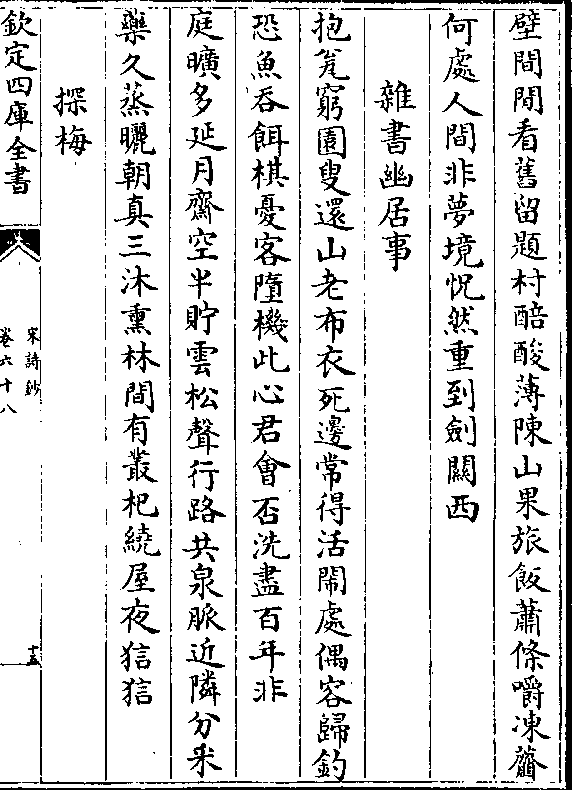 壁間閒看舊留題村醅酸薄陳山果旅飯蕭條嚼凍虀
何處人間非夢境怳然重到劍關西
雜書幽居事
抱瓮窮園叟還山老布衣死邊常得活鬧處偶容歸釣
恐魚吞餌棋憂客墮機此心君會否洗盡百年非
庭曠多延月齋空半貯雲松聲行路共泉脈近隣分采
藥久蒸曬朝真三沐熏林間有叢杞繞屋夜狺狺
探梅
欽定四庫全書
宋詩鈔
卷六十八
十五